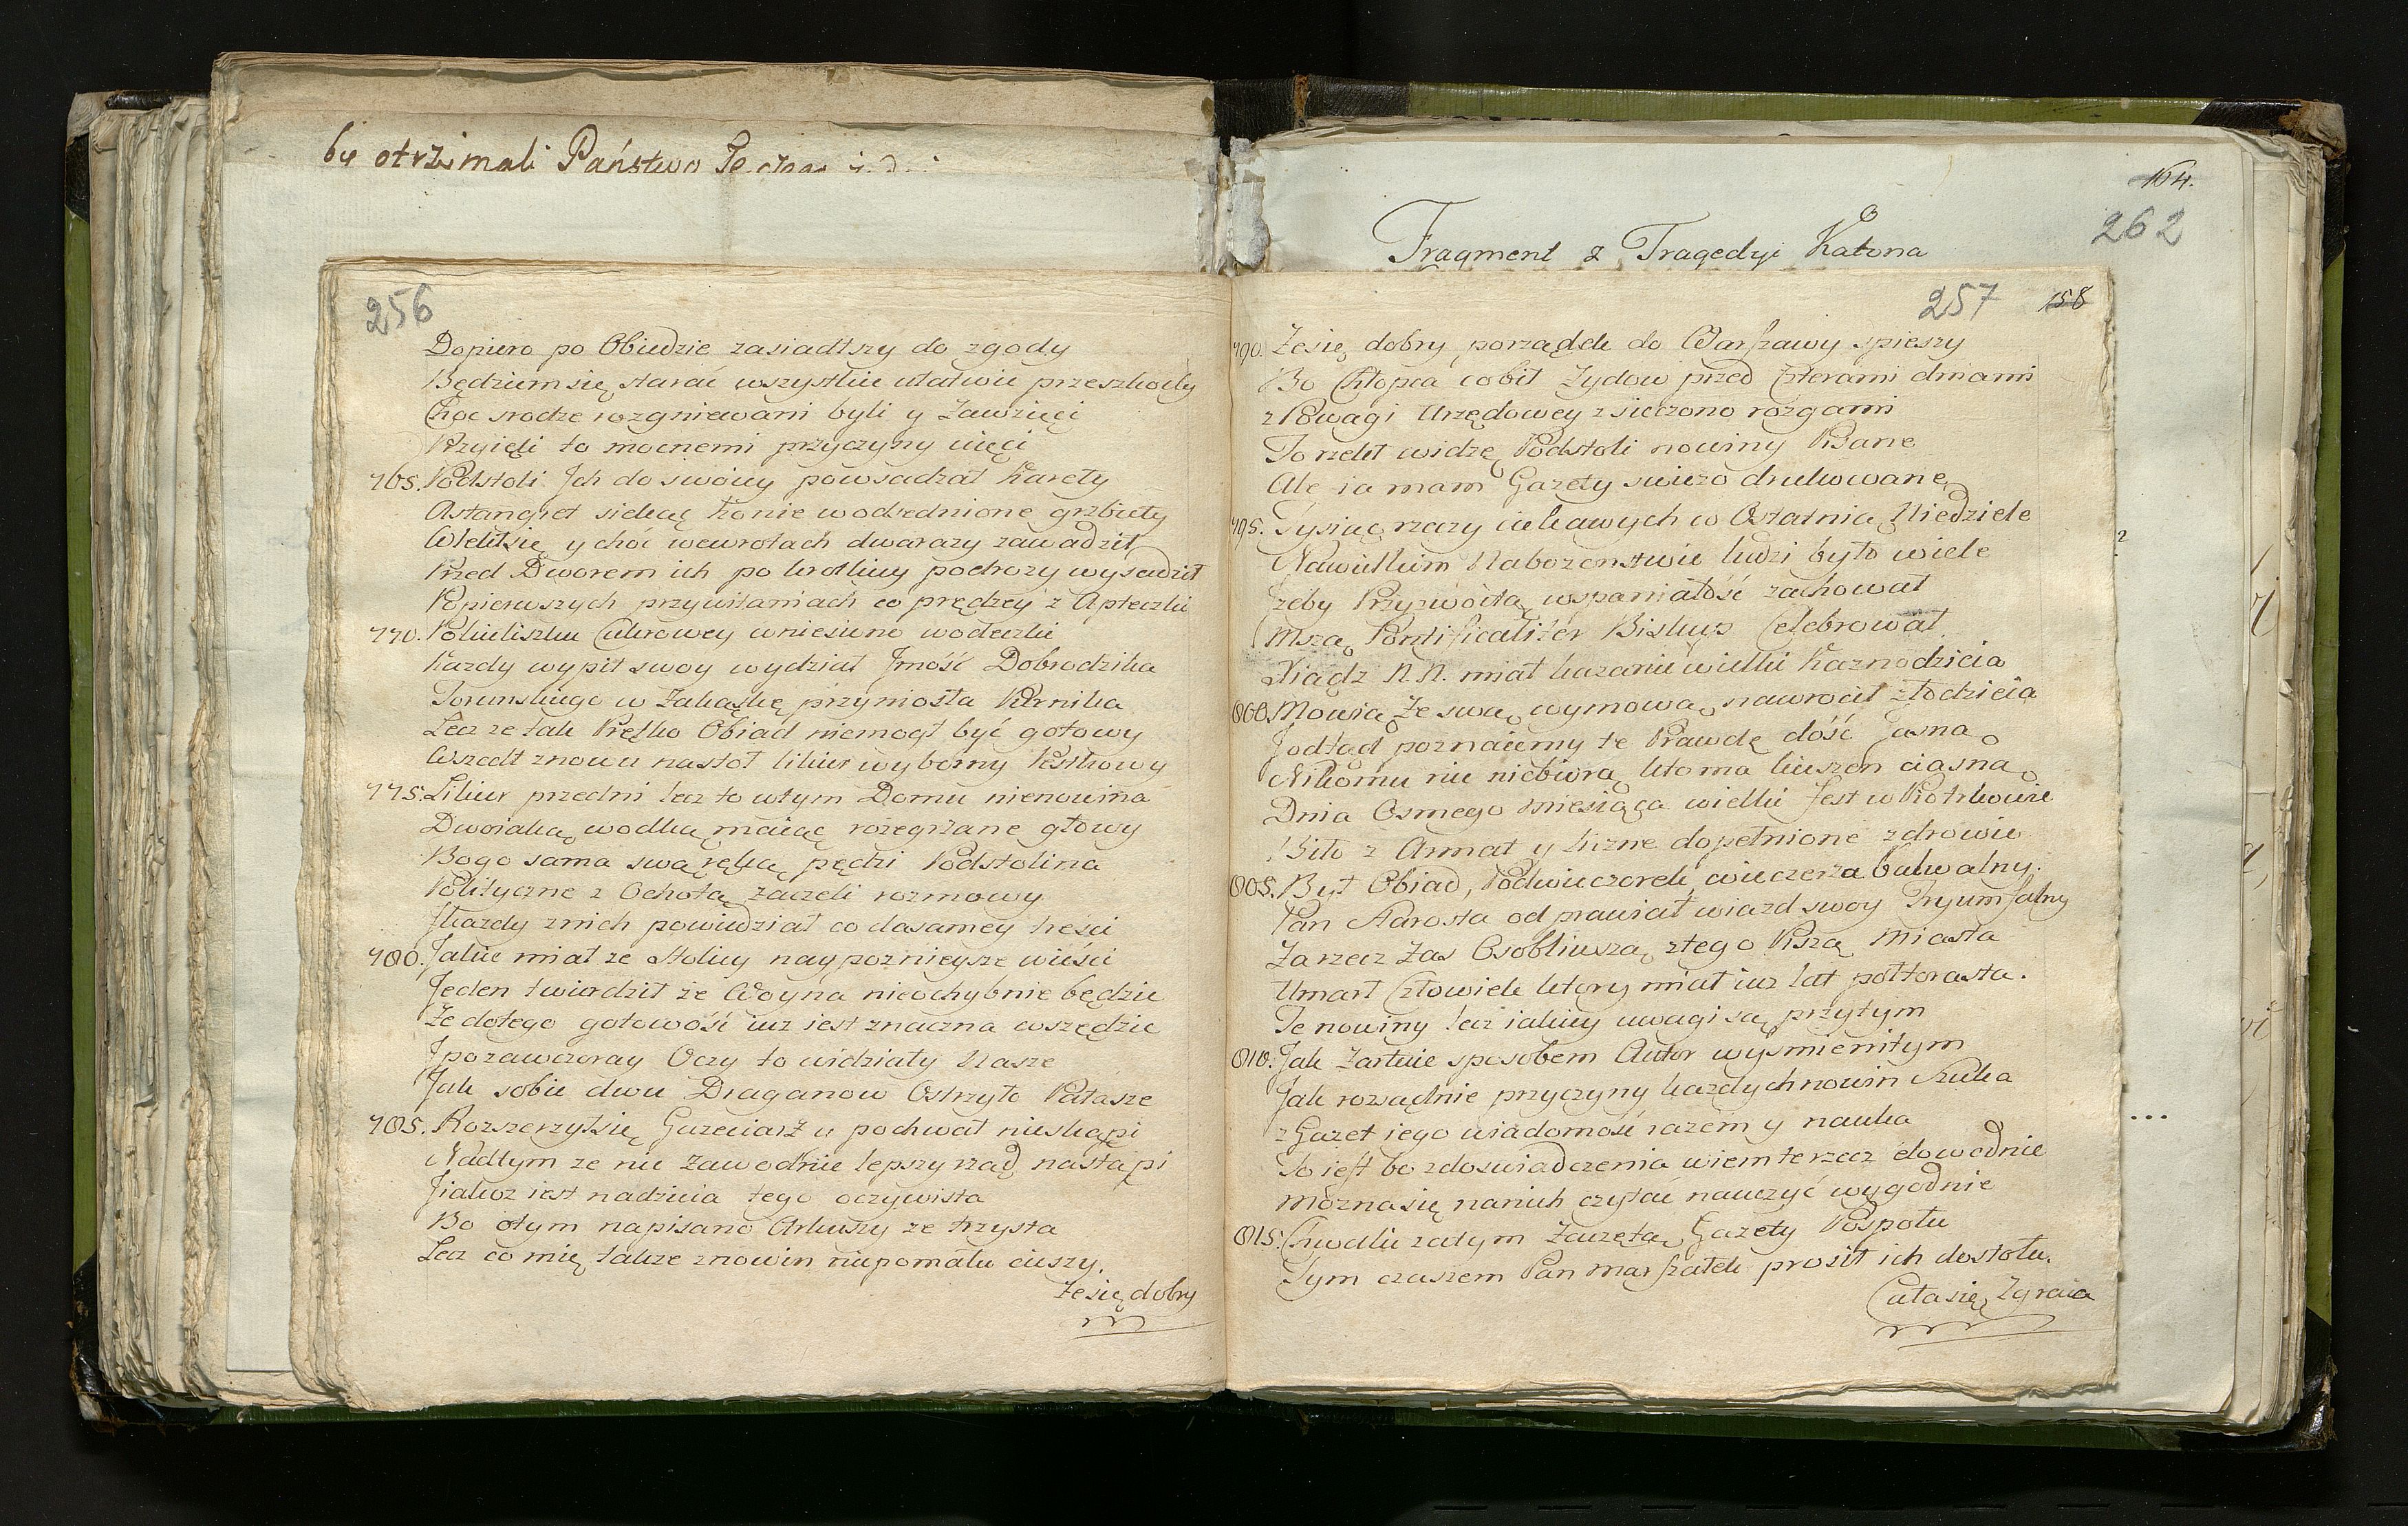 by otrzimali Państwo
256
Dopiero po Obiedzie zasiadłszy do zgody
Będziem się starać wszystkie ułatwić przeszkody
Choc srodze rozgniewani byli y Zawzięci
Przyięli to mocnemi przyczyny uięci
765. Podstoli Jch do swoiey powsadzał Karety
A stangret siekąc konie wodrednione grzbiety
Wlekł się y choć wewrotach dwarazy zawadził
Przed Dworem ich po krotkiey podrozy wysadził
Popierwszych przywitaniach co prędzey z Apteczki
770. Pokieliszku Cukrowey wniesiono wodeczki
Kazdy wypił swoy wydział Jmość Dobrodzika
Torunskiego w Zakąskę przyniosła Piernika
Lecz ze tak Prętko Obiad niemogł być gotowy
Wszedł znowu nastoł likier wyborny Pestkowy
775. Likier przedni lecz to wtym Domu nienowina
Dwoiaką wodką maiąc rozegrzane głowy
Bogo sama swą ręką pędzi Podstolina
Polityczne z Ochotą zaczeli rozmowy
Jkazdy znich powiedział co dasamey treści
780. Jakie miał ze Stolicy naypoznieysze wieści
Jeden twierdził że Woyna nieochybnie będzie
Ze dotego gotowość iuz iest znaczna wszędzie
Jpozawczoray Oczy to widziały Nasze
Jak sobie dwu Draganow Ostrzyło Pałasze
785. Rozszerzył się Gazeciarz u pochwał nieskąpi
Nadtym ze nie Zawodnie lepszy rząd nastąpi
Jiakoz iest nadzieia tego oczywista
Bo otym napisano Arkuszy ze trzysta
Lecz co mię takze znowin niepomału cieszy,
Ze się dobry
104.
262
Fragment z Tragedyi Katona
257 158
790. Ze się dobry porządek do Warszawy spieszy
Bo Chłopca cobił Zydow przed Czterami dniami
z Powagi Urzędowey zsieczono rozgami
To rzekł widzę Podstoli nowiny Pisane
Ale ia mam Gazety swiezo drukowane
795. Tysiąc rzeczy ciekawych w Ostatnią Niedziele
Nawielkim Nabozenstwie ludzi było wiele
Jzeby Przyzwoitą wspaniałość zachował
Mszą Pontificaliter Biskup Celebrował
Xiądz N. N. miał kazanie wielki Kaznodzieia
800. Mowią Ze swą wymową nawrocił złodzieia
Jodtąd poznaiemy te Prawdę dość Jasną
Nikomu nic niebiorą kto ma kieszen ciasną
Dnia Osmego miesiąca wielki Fest w Piotrkowie
Bito z Armat y liczne dopełnione zdrowie
805. Był Obiad, Podwieczorek wieczerza baliwalny.
Pan Starosta odprawiał wiazd swoy Tryumfalny
Za rzecz Zas Osobliwszą ztego Piszą Miasta
Umarł Człowiek ktory miał iuz lat połtorasta.
Te nowiny lecz iakiey uwagi są przytym
810. Jak Zartuie sposobem Autor wysmienitym
Jak rozsądnie przyczyny kazdych nowin Szuka
z Gazet iego wiadomość razem y nauka
To iest bo zdoswiadczenia wiem te rzecz dowodnie
Mozna się nanich czytać nauczyć wygodnie
815. Chwalić zatym Zaczętą Gazety Pospołu
Tym czasem Pan Marszałek prosił ich dostołu.
Cała się Zgraia